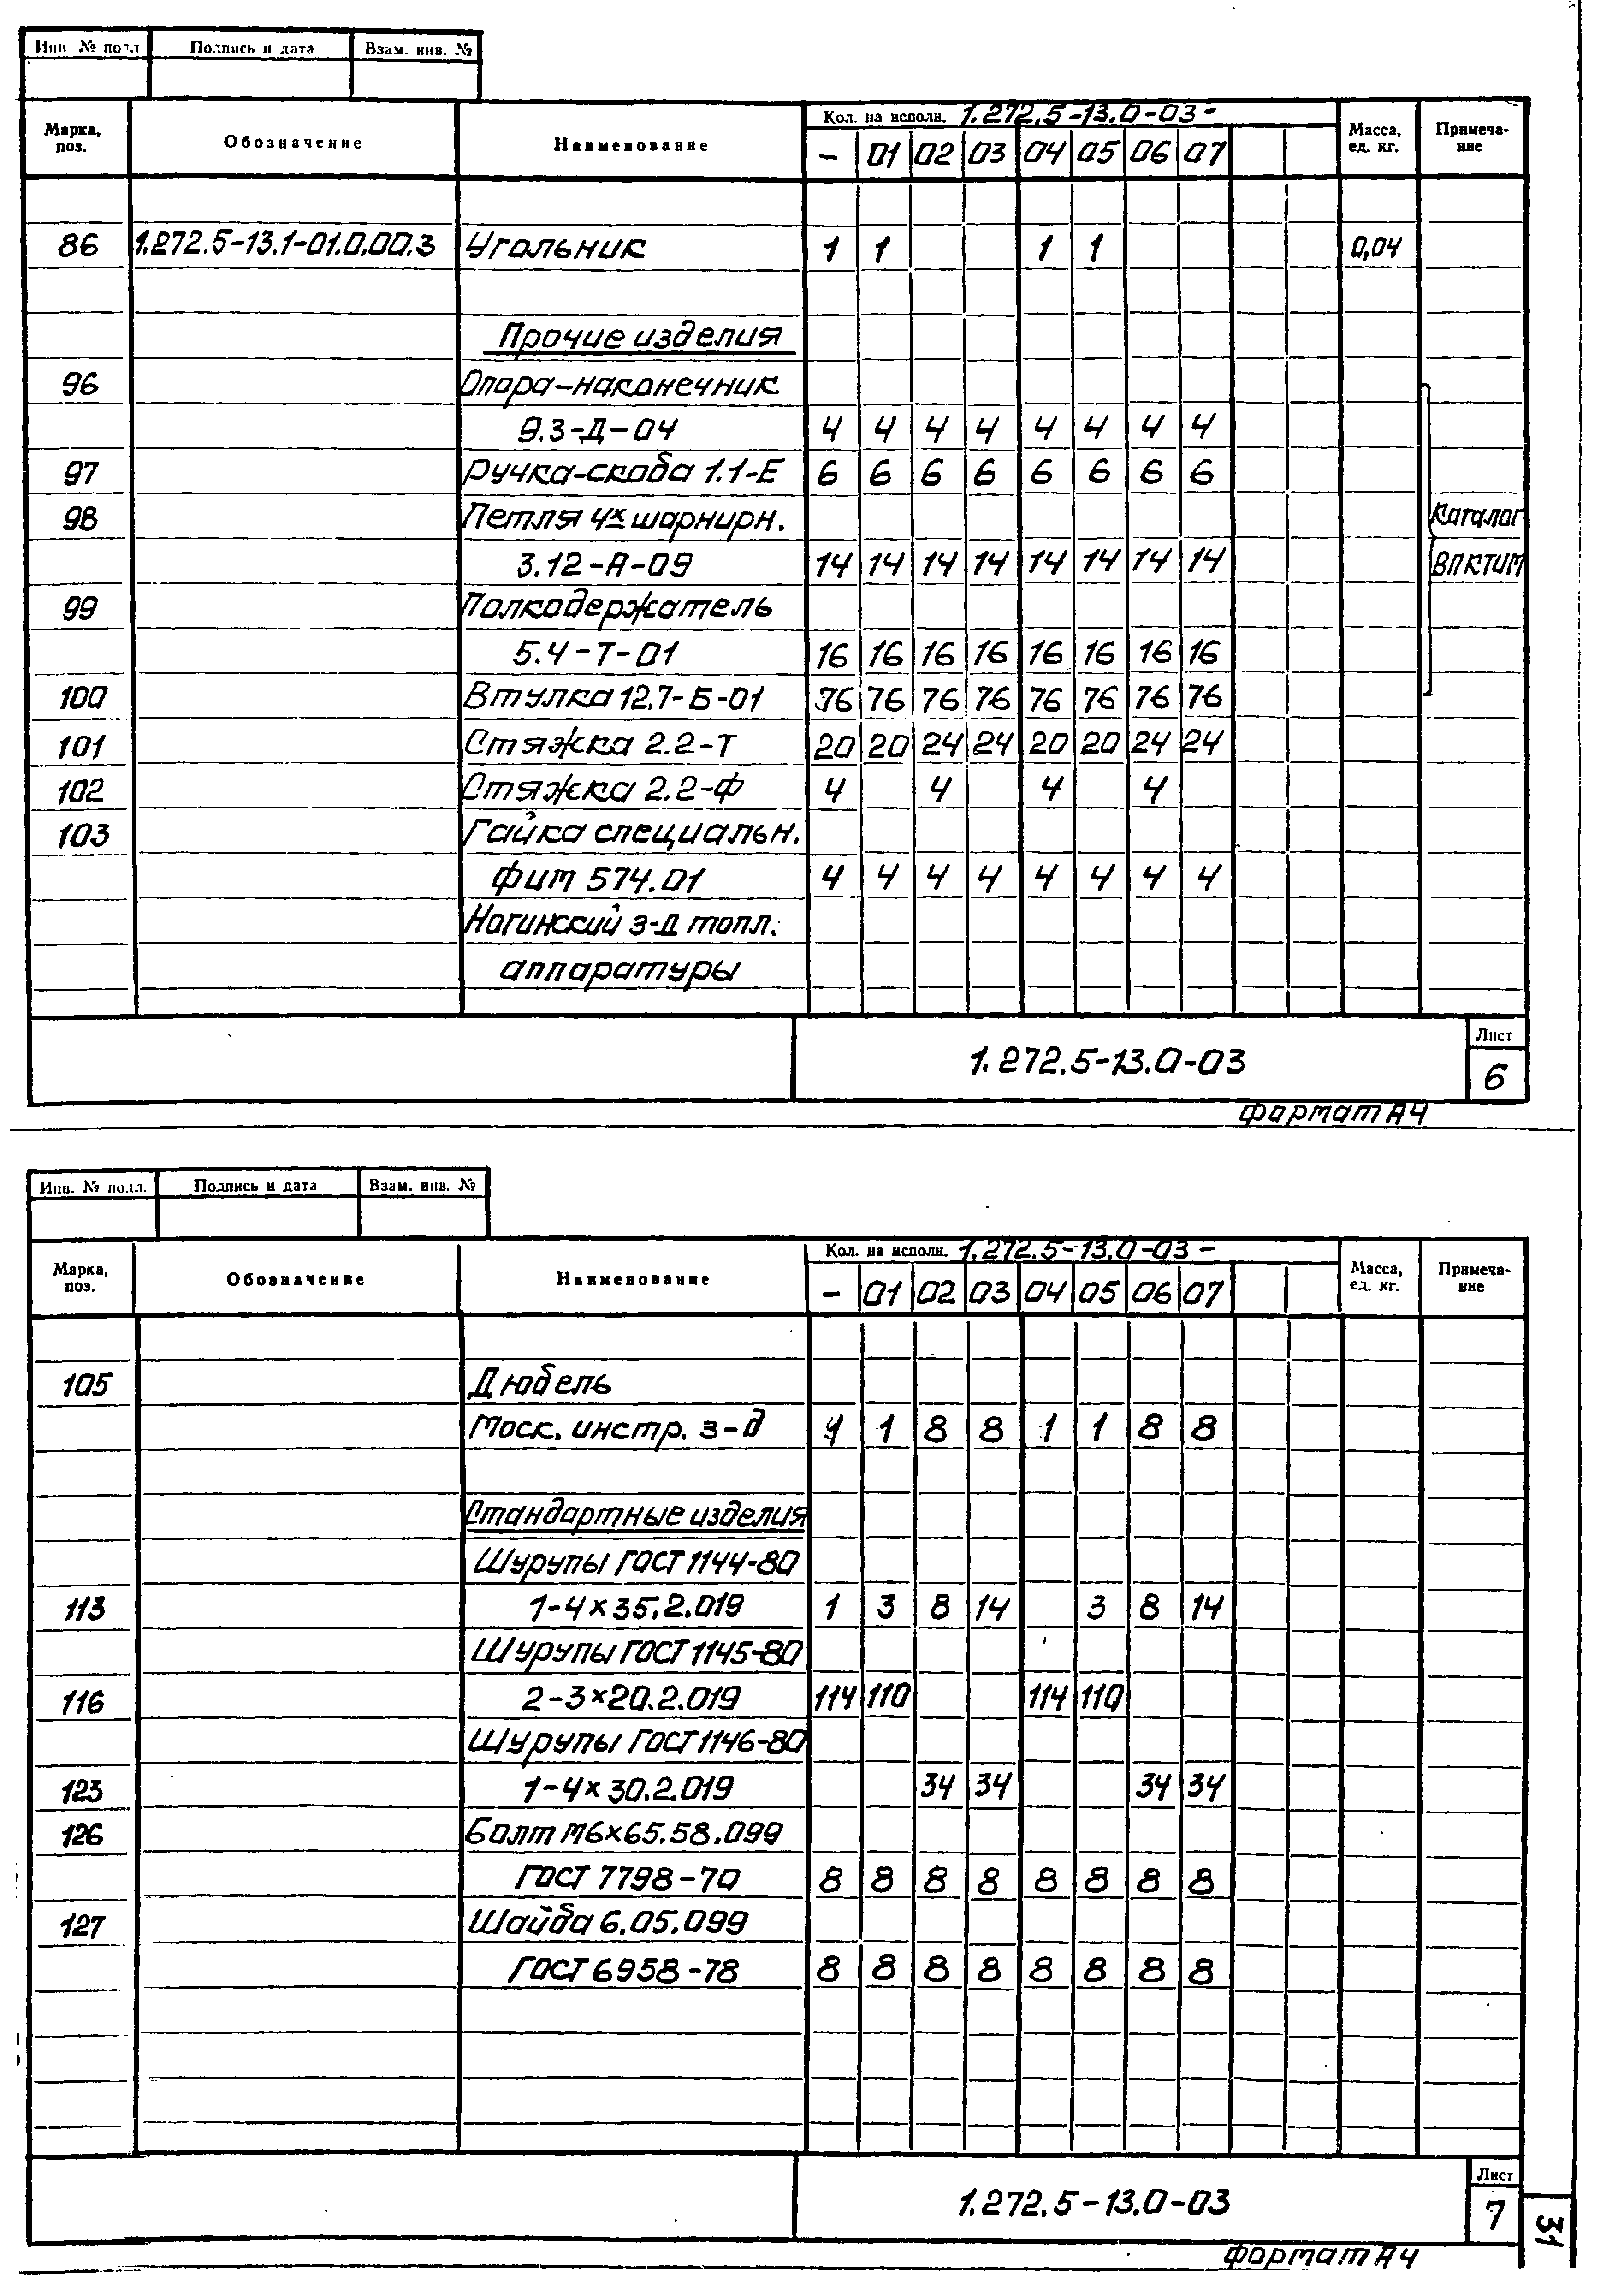 Инв. № подл. Подпись и дата Взам. инв. №
Марка, поз. Обозначение Наименование Кол. на исполн. 1.272.5-13.0-03- Масса, ед. кг. Примеча-ние
- 01 02 03 04 05 06 07
86 1.272.5-13.1-01.0.00.3 Угольник 1 1 1 1 0,04
Прочие изделия
96 Опора-наконечник
9.3-Д-04 4 4 4 4 4 4 4 4
97 Ручка-скоба 1.1-Е 6 6 6 6 6 6 6 6
98 Петля 4х шарнирн. Каталог
3.12-А-09 14 14 14 14 14 14 14 14 ВПКТИМ
99 Полкодержатель
5.4-Т-01 16 16 16 16 16 16 16 16
100 Втулка 12.7-Б-01 76 76 76 76 76 76 76 76
101 Стяжка 2.2-Т 20 20 24 24 20 20 24 24
102 Стяжка 2.2-Ф 4 4 4 4
103 Гайка специальн.
фит 574.01 4 4 4 4 4 4 4 4
Ногинский з-д топл.
аппаратуры
1.272.5-13.0-03 Лист 6
формат А4
Инв. № подл. Подпись и дата Взам. инв. №
Марка, поз. Обозначение Наименование Кол. на исполн. 1.272.5-13.0-03- Масса, ед. кг. Примеча-ние
- 01 02 03 04 05 06 07
105 Дюбель
Моск. инстр. з-д 1 8 8 1 1 8 8
Стандартные изделия
Шурупы ГОСТ 1144-80
113 1-4×35.2.019 1 3 8 14 3 8 14
Шурупы ГОСТ 1145-80
116 2-3×20.2.019 114 110 114 110
Шурупы ГОСТ 1146-80
123 1-4×30.2.019 34 34 34 34
126 Болт М6×65.58.099
ГОСТ 7798-70 8 8 8 8 8 8 8 8
127 Шайба 6.05.099
ГОСТ 6958-78 8 8 8 8 8 8 8 8
1.272.5-13.0-03 Лист 7
31
формат А4